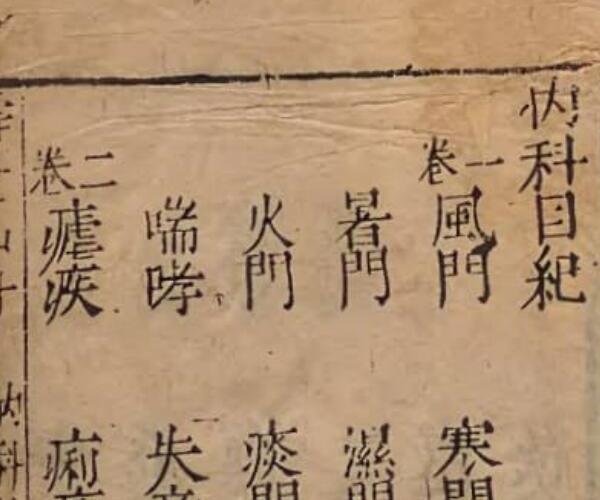 内科目紀
卷一 風門 寒門
暑門 濕門
火門 痰門
喘哮 失音
卷二 瘧疾 痢
内科